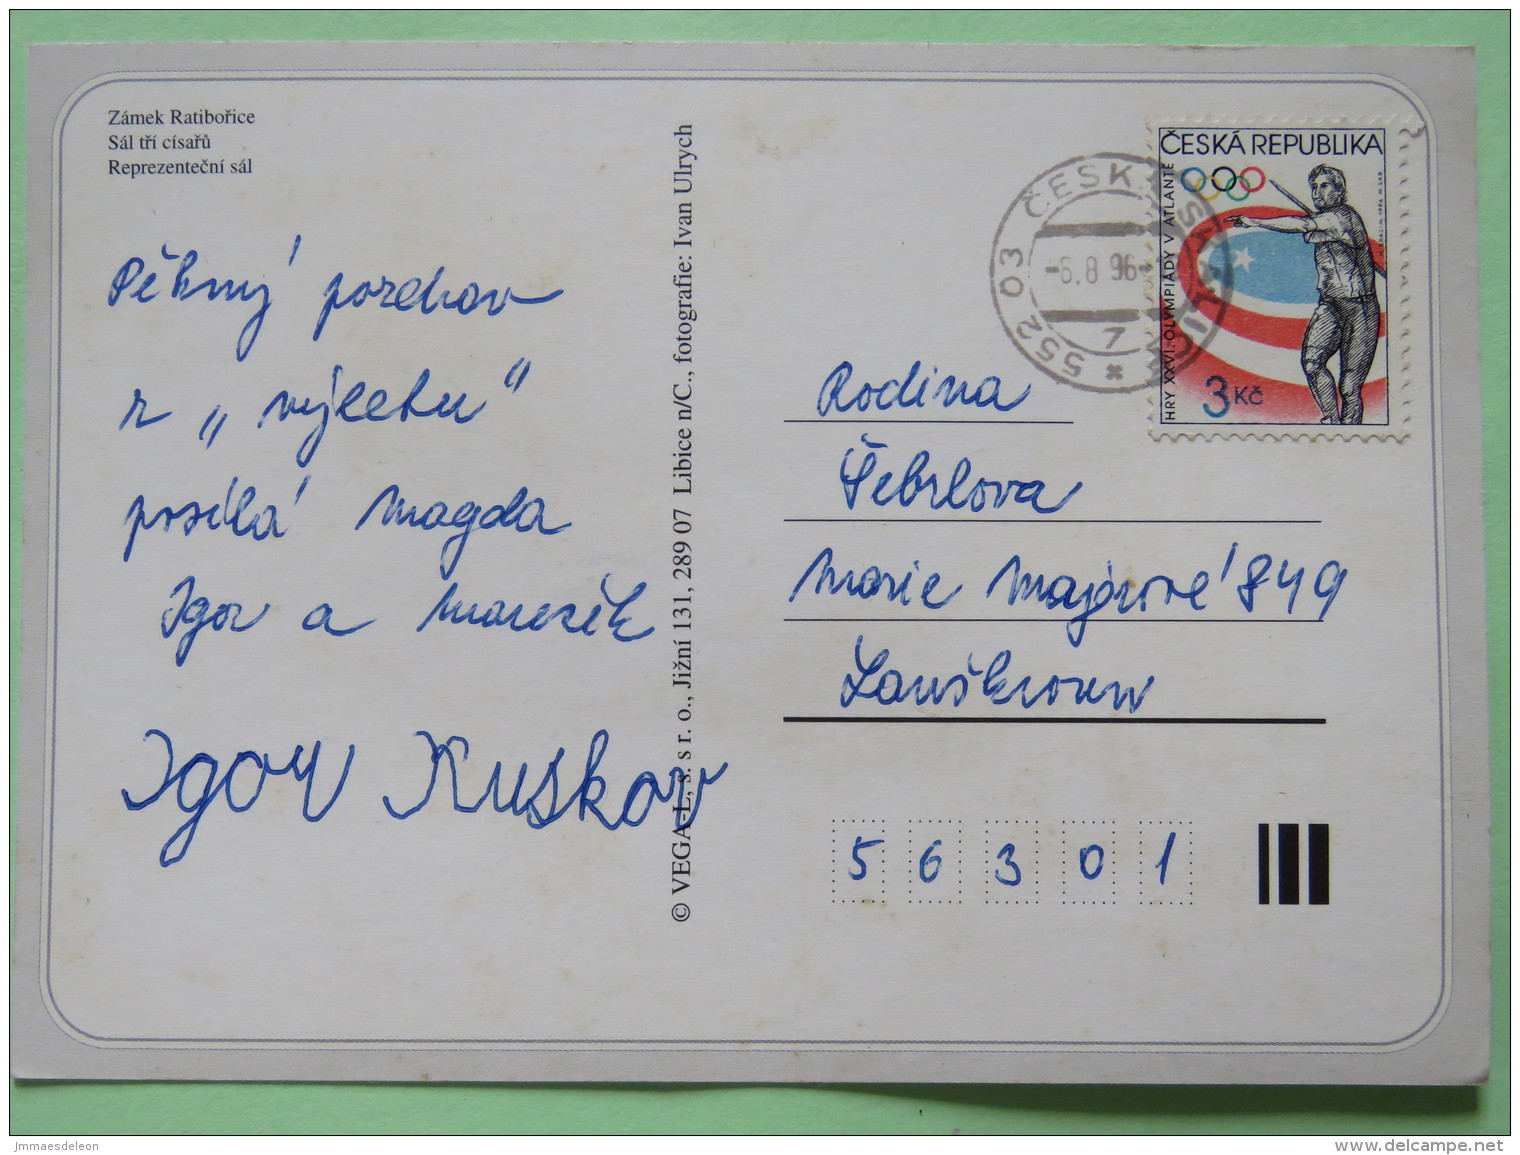 Zámek Ratibořice
Sál tří císařů
Reprezenteční sál
Pěkný pozdrav
z „výletu“
posílá Magda
Igor a Mareček
Igor Kuskov
© VEGA-L, s. s r. o., Jižní 131, 289 07 Libice n/C., fotografie: Ivan Ulrych
552 03 ČESKÁ SKALICE
-6.8 96
7
ČESKÁ REPUBLIKA
HRY XXVI. OLYMPIÁDY V ATLANTĚ
3 Kč
Rodina
Marie Majerové 849
Lanškroun
56301
jmmaesdeleon
www.delcampe.net